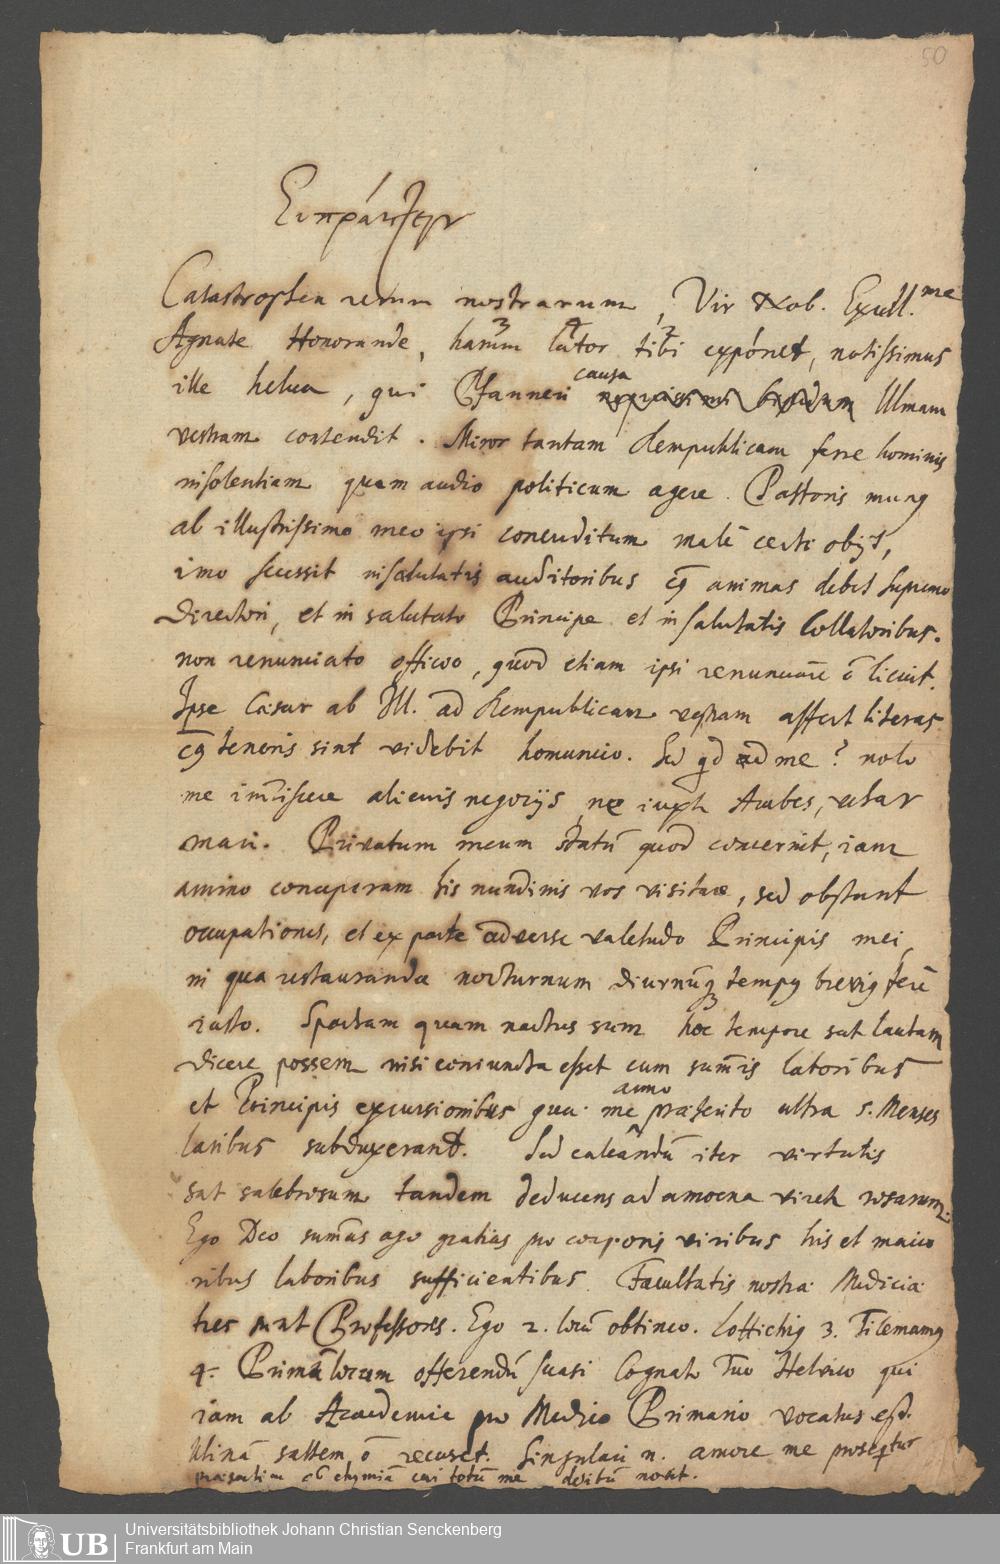 50
Ευπράττειν
Catastrophen rerum nostrarum, Vir Nob. Excell.me
Agnate Honorande, harum lator tibi exponet, notissimus
ille helluo, qui Pfanneri causa Ulmam
vestram contendit. Miror tantam Rempublicam ferre hominis
insolentiam quem audio politicum agere. Pastoris munq
ab illustrissimo meo ipsi concreditum malè certè obijt,
imo secessit insalutatis auditoribus animas debet supremo
Directori, et insalutato Principe et insalutatis Collatoribus.
non renunciato officio, quod etiam ipsi renunciare ō licuit.
Ipse Cæsar ab Ill. ad Rempublicam vestram affert literas
tenoris sint videbit homuncio. Sed qd ad me? nolo
me im̄iscere alienis negocijs, ne iuxta Arabes,
Privatum meum statū quod concernit, iam
animo conceperam his nundinis vos visitare, sed obstant
occupationes, et ex parte adversa valetudo Principis mei,
in qua restauranda nocturnum diurnūq tempq ferè
Spartam quam nactus sum hoc tempore sat lautam
dicere possem nisi coniuncta esset cum sum̄is laboribus
et Principis excursionibus quæ me anno præterito ultra 5. Menses
laribus subduxerant. Sed calcandū iter virtutis
sat salebrosum tandem deducens ad amoena vireta rosarum.
Ego Deo sum̄as ago gratias pro corporis viribus his et maio
ribus laboribus sufficientibus. Facultatis nostræ Medicæ
tres sunt Professores. Ego 2. locū obtineo. Lottichiq 3. Tilemannq
4. Primū locum offerendū suasi Cognato Tuo Helvico qui
iam ab Academia pro Medico Primario vocatus est.
Utinā saltem ō recuset. Singulari n. amore me prosequitur
præsertim ob chymiā cui totū me deditū novit.
Universitätsbibliothek Johann Christian Senckenberg
Frankfurt am Main
UB